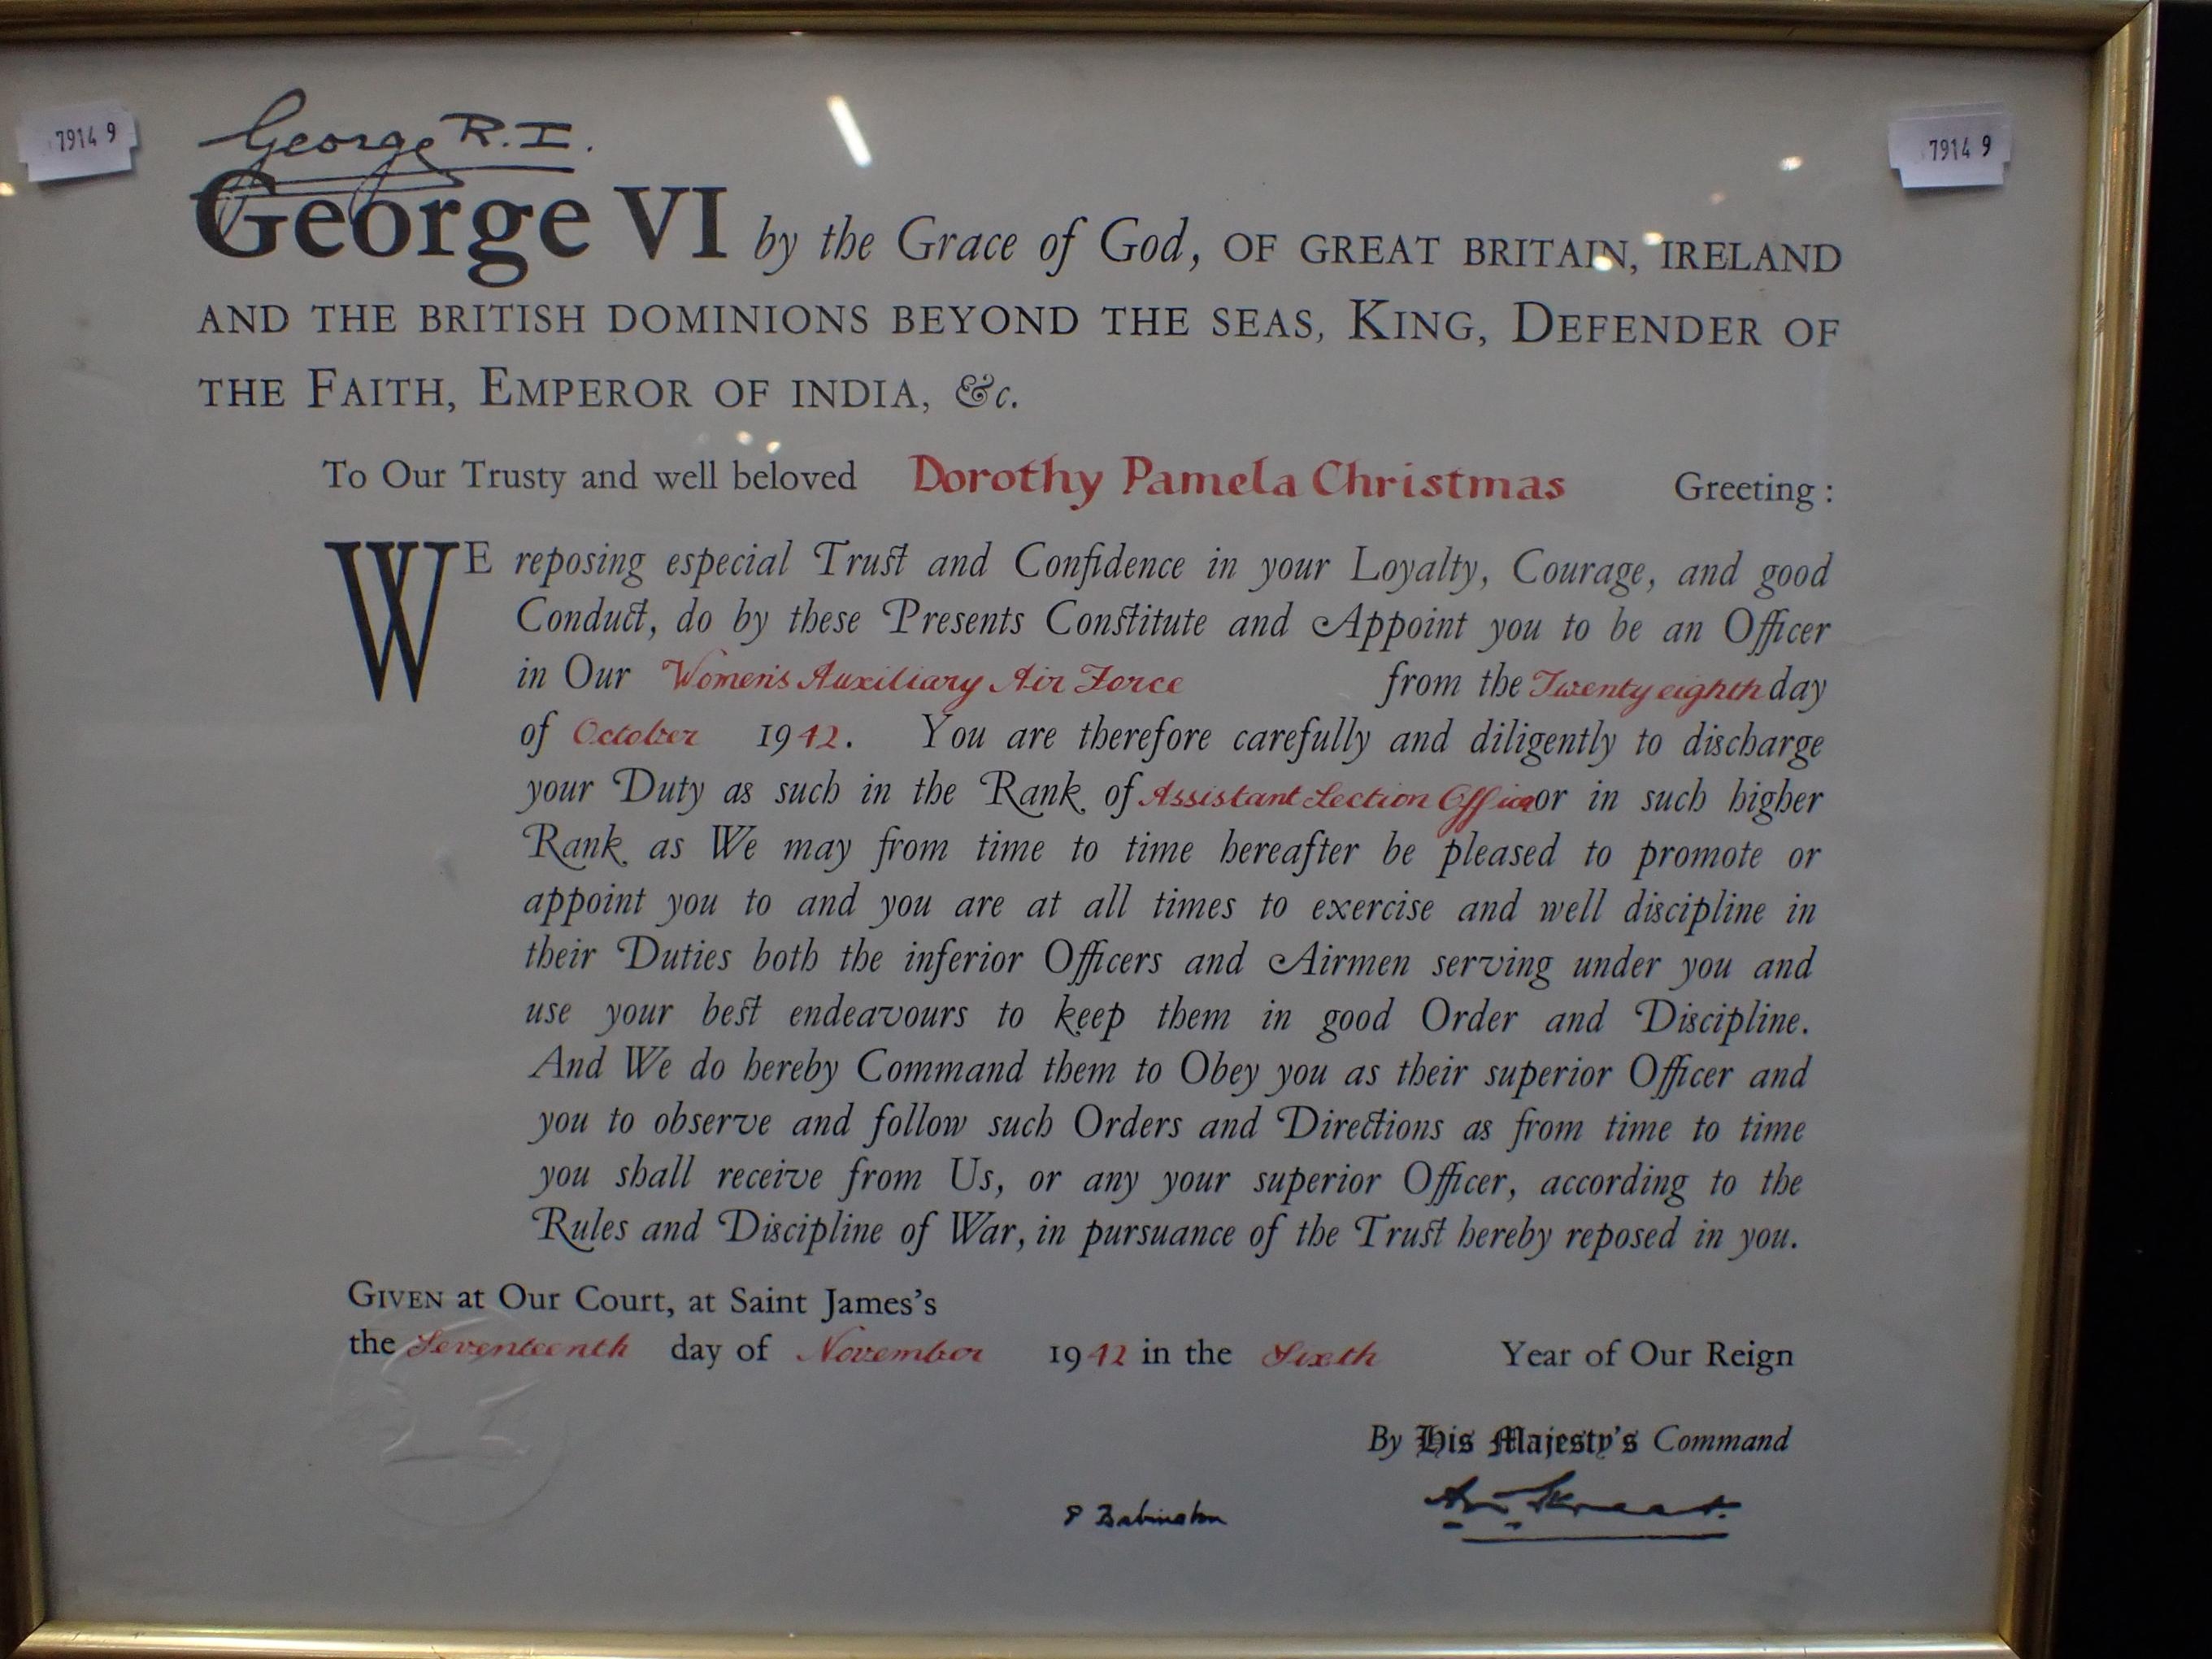 7914 9
7914 9
George R.I.
George VI by the Grace of God, OF GREAT BRITAIN, IRELAND
AND THE BRITISH DOMINIONS BEYOND THE SEAS, KING, DEFENDER OF
THE FAITH, EMPEROR OF INDIA, &c.
To Our Trusty and well beloved Dorothy Pamela Christmas Greeting :
WE reposing especial Trust and Confidence in your Loyalty, Courage, and good
Conduct, do by these Presents Constitute and Appoint you to be an Officer
in Our Women's Auxiliary Air Force from the Twenty eighth day
of October 1942. You are therefore carefully and diligently to discharge
your Duty as such in the Rank of Assistant Section Officer or in such higher
Rank as We may from time to time hereafter be pleased to promote or
appoint you to and you are at all times to exercise and well discipline in
their Duties both the inferior Officers and Airmen serving under you and
use your best endeavours to keep them in good Order and Discipline.
And We do hereby Command them to Obey you as their superior Officer and
you to observe and follow such Orders and Directions as from time to time
you shall receive from Us, or any your superior Officer, according to the
Rules and Discipline of War, in pursuance of the Trust hereby reposed in you.
GIVEN at Our Court, at Saint James's
the Seventeenth day of November 1942 in the Sixth Year of Our Reign
By His Majesty's Command
P Babington